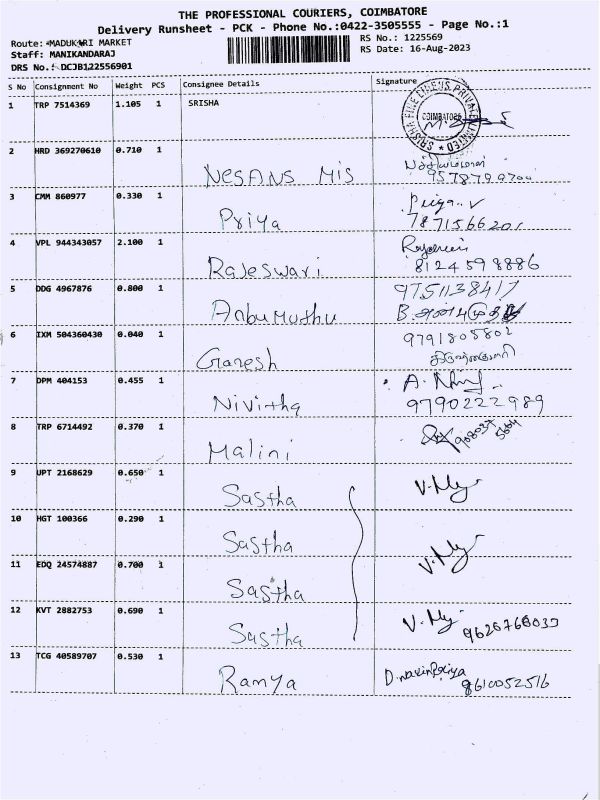 THE PROFESSIONAL COURIERS, COIMBATORE
Delivery Runsheet - PCK - Phone No.:0422-3505555 - Page No.:1
Route: MADUKARI MARKET
RS No.: 1225569
Staff: MANIKANDARAJ
RS Date: 16-Aug-2023
DRS No.: DCJB122556901
S No Consignment No Weight PCS Consignee Details Signature
1 TRP 7514369 1.105 1 SRISHA
COIMBATORE
2 HRD 369270610 0.710 1
NESANS MIS
3 CMM 860977 0.330 1 Priya.V
Priya 7871566201
4 VPL 944343057 2.100 1
Rajeswari 8124598886
5 DDG 4967876 0.800 1 9751138417
Anbumuthu B.அன்புமுத்து
6 IXM 504360430 0.040 1 9791805802
Ganesh
7 DPM 404153 0.455 1
Nivitha 9790222989
8 TRP 6714492 0.370 1
Malini
9 UPT 2168629 0.650 1
Sastha
10 HGT 100366 0.290 1
Sastha
11 EDQ 24574887 0.700 1
Sastha
12 KVT 2882753 0.690 1
Sastha 9626768033
13 TCG 40589707 0.530 1
Ramya 8610052516